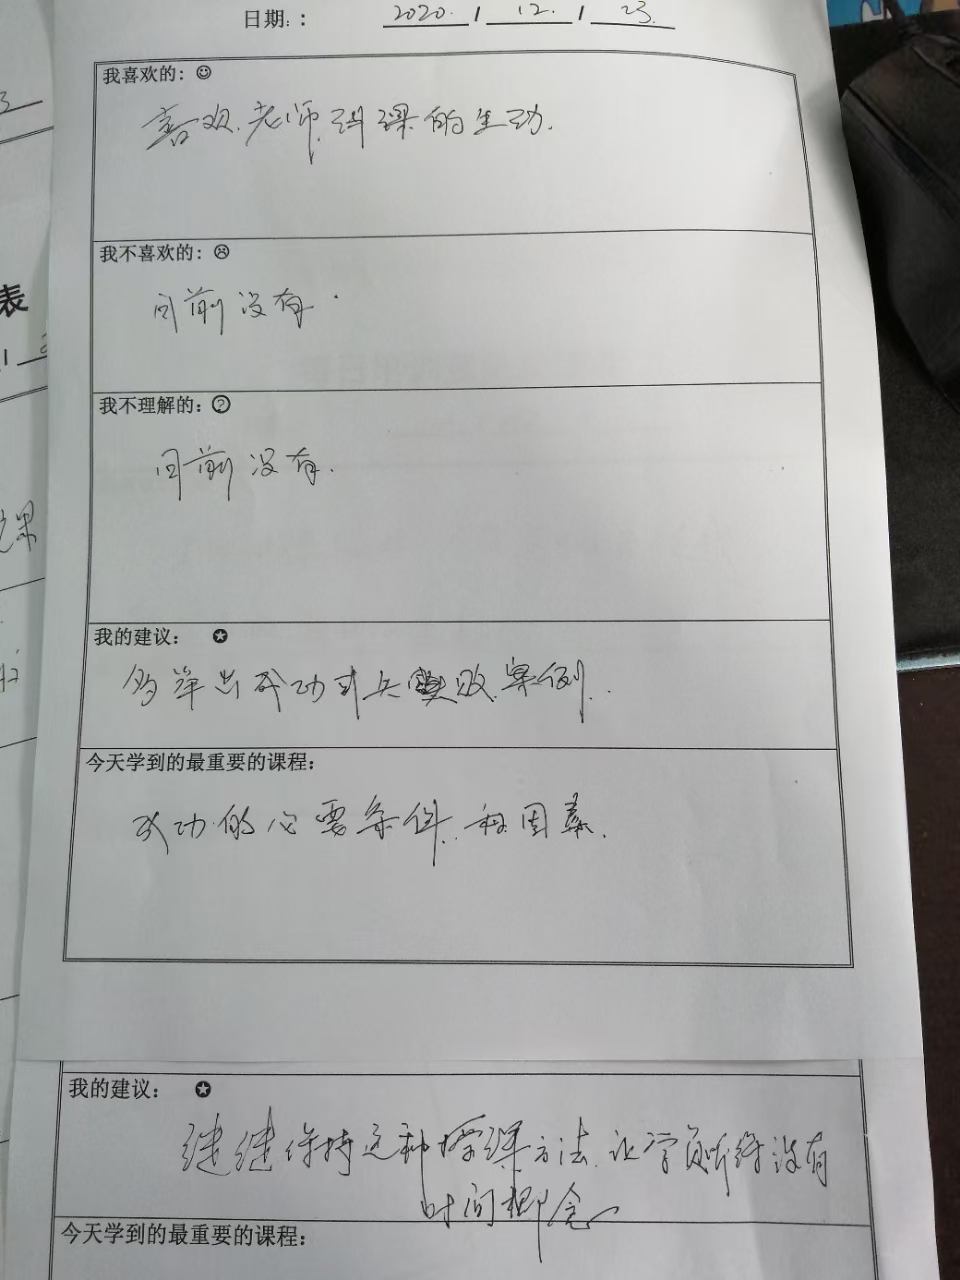 日期：: 2020. / 12. / 23.
我喜欢的：☺
喜欢.老师.讲课的生动.
我不喜欢的：☹
目前没有.
我不理解的：?
目前没有.
我的建议： ✪
多举出成功或失败案例..
今天学到的最重要的课程：
成功的必要条件.和因素.
我的建议： ✪
继继保持这种授课方法.让学员听得没有
时间概念
今天学到的最重要的课程：
表
课